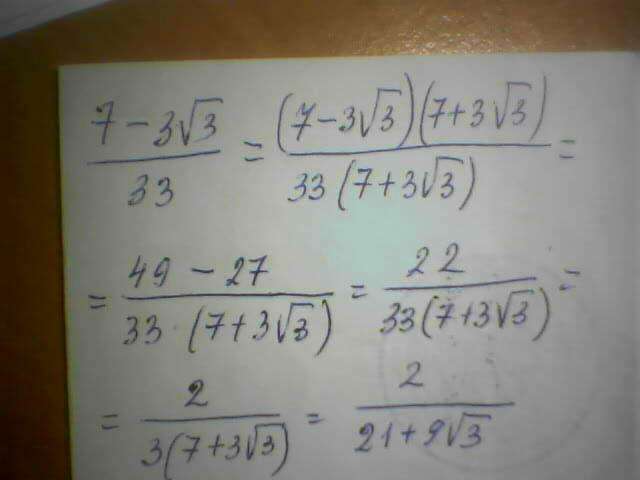 (7-3√3)/33 = ((7-3√3)(7+3√3))/(33(7+3√3)) =
= (49-27)/(33·(7+3√3)) = 22/(33(7+3√3)) =
= 2/(3(7+3√3)) = 2/(21+9√3)